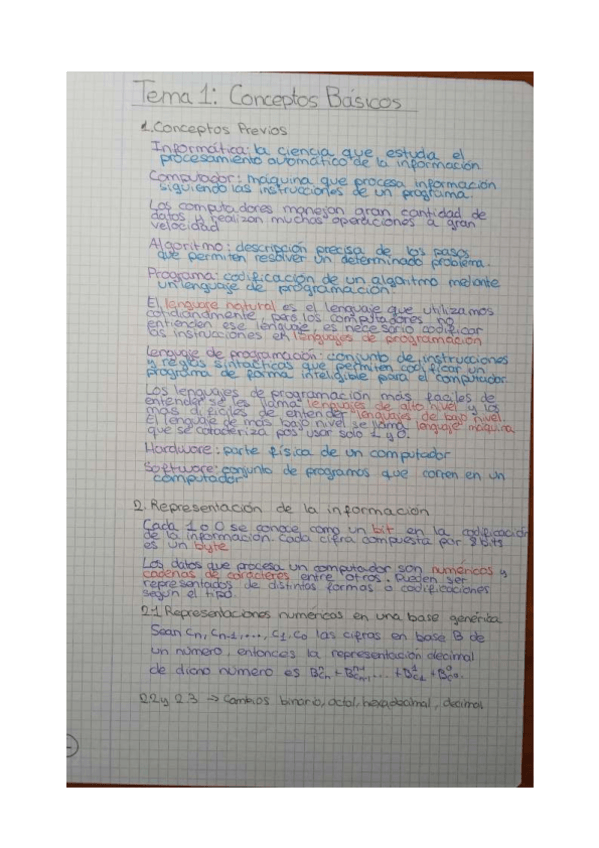 Tema 1: Conceptos Básicos
1. Conceptos Previos
Informática: la ciencia que estudia el
procesamiento automático de la información.
Computador: máquina que procesa información
siguiendo las instrucciones de un programa.
Los computadores manejan gran cantidad de
datos y realizan muchas operaciones a gran
velocidad
Algoritmo: descripción precisa de los pasos
que permiten resolver un determinado problema.
Programa: codificación de un algoritmo mediante
un lenguaje de programación.
El lenguaje natural es el lenguaje que utilizamos
cotidianamente, pero los computadores no
entienden ese lenguaje, es necesario codificar
las instrucciones en lenguajes de programación
Lenguaje de programación: conjunto de instrucciones
y reglas sintácticas que permiten codificar un
programa de forma inteligible para el computador.
Los lenguajes de programación más fáciles de
entender se les llama lenguajes de alto nivel y los
más difíciles de entender lenguajes de bajo nivel
El lenguaje de más bajo nivel se llama lenguaje máquina
que se caracteriza por usar solo 1 y 0.
Hardware: parte física de un computador
Software: conjunto de programas que corren en un
computador
2. Representación de la información
Cada 1 o 0 se conoce como un bit en la codificación
de la información. Cada cifra compuesta por 8 bits
es un byte
Los datos que procesa un computador son numéricos y
cadenas de carácteres entre otros. Pueden ser
representados de distintas formas o codificaciones
según el tipo.
2.1 Representaciones numéricas en una base genérica
Sean Cn, Cn-1, ..., C1, C0 las cifras en base B de
un número, entonces la representación decimal
de dicho número es
2.2 y 2.3 → Cambios binario, octal, hexadecimal, decimal